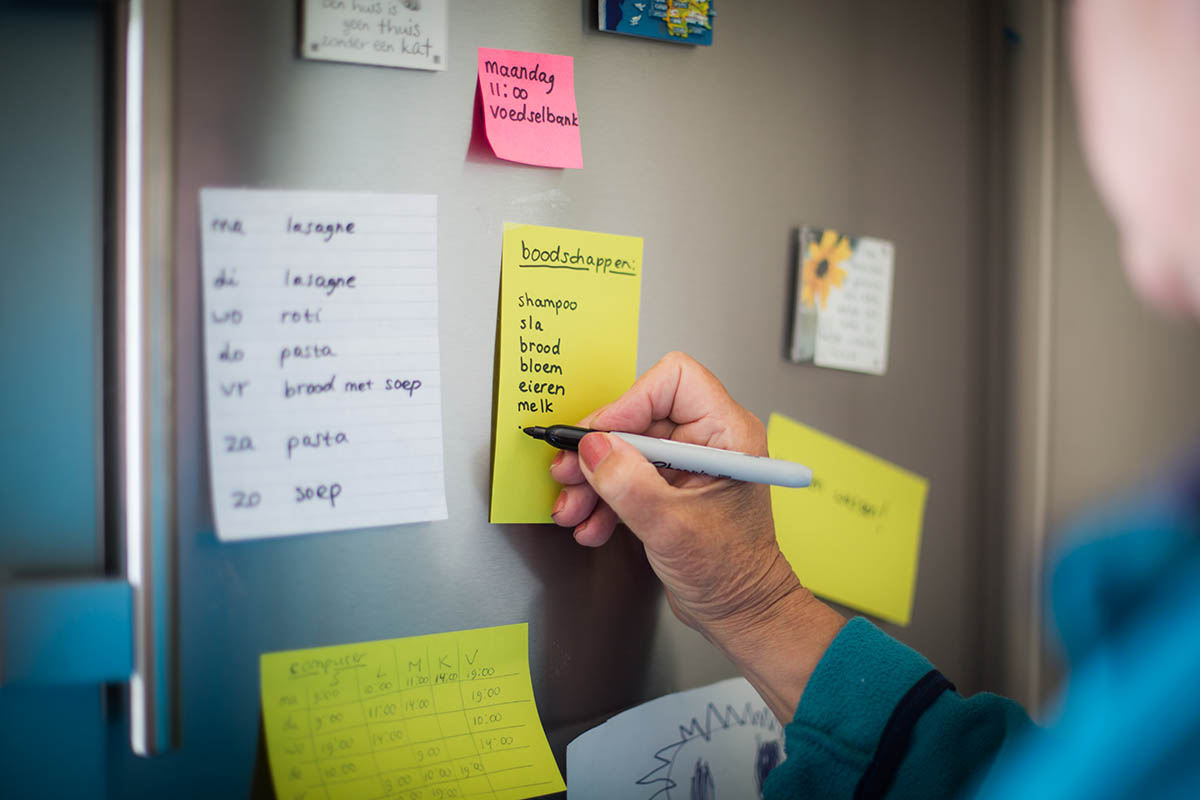 een huis is
geen thuis
zonder een kat
maandag
11:00
voedselbank
ma lasagne
di lasagne
wo roti
do pasta
vr brood met soep
za pasta
zo soep
boodschappen:
shampoo
sla
brood
bloem
eieren
melk
computer
S L M K V
ma 9:00 10:00 11:00 14:00 19:00
di 9:00 11:00 14:00 19:00
wo 19:00 14:00 10:00
do 10:00 9:00 14:00
9:00 10:00